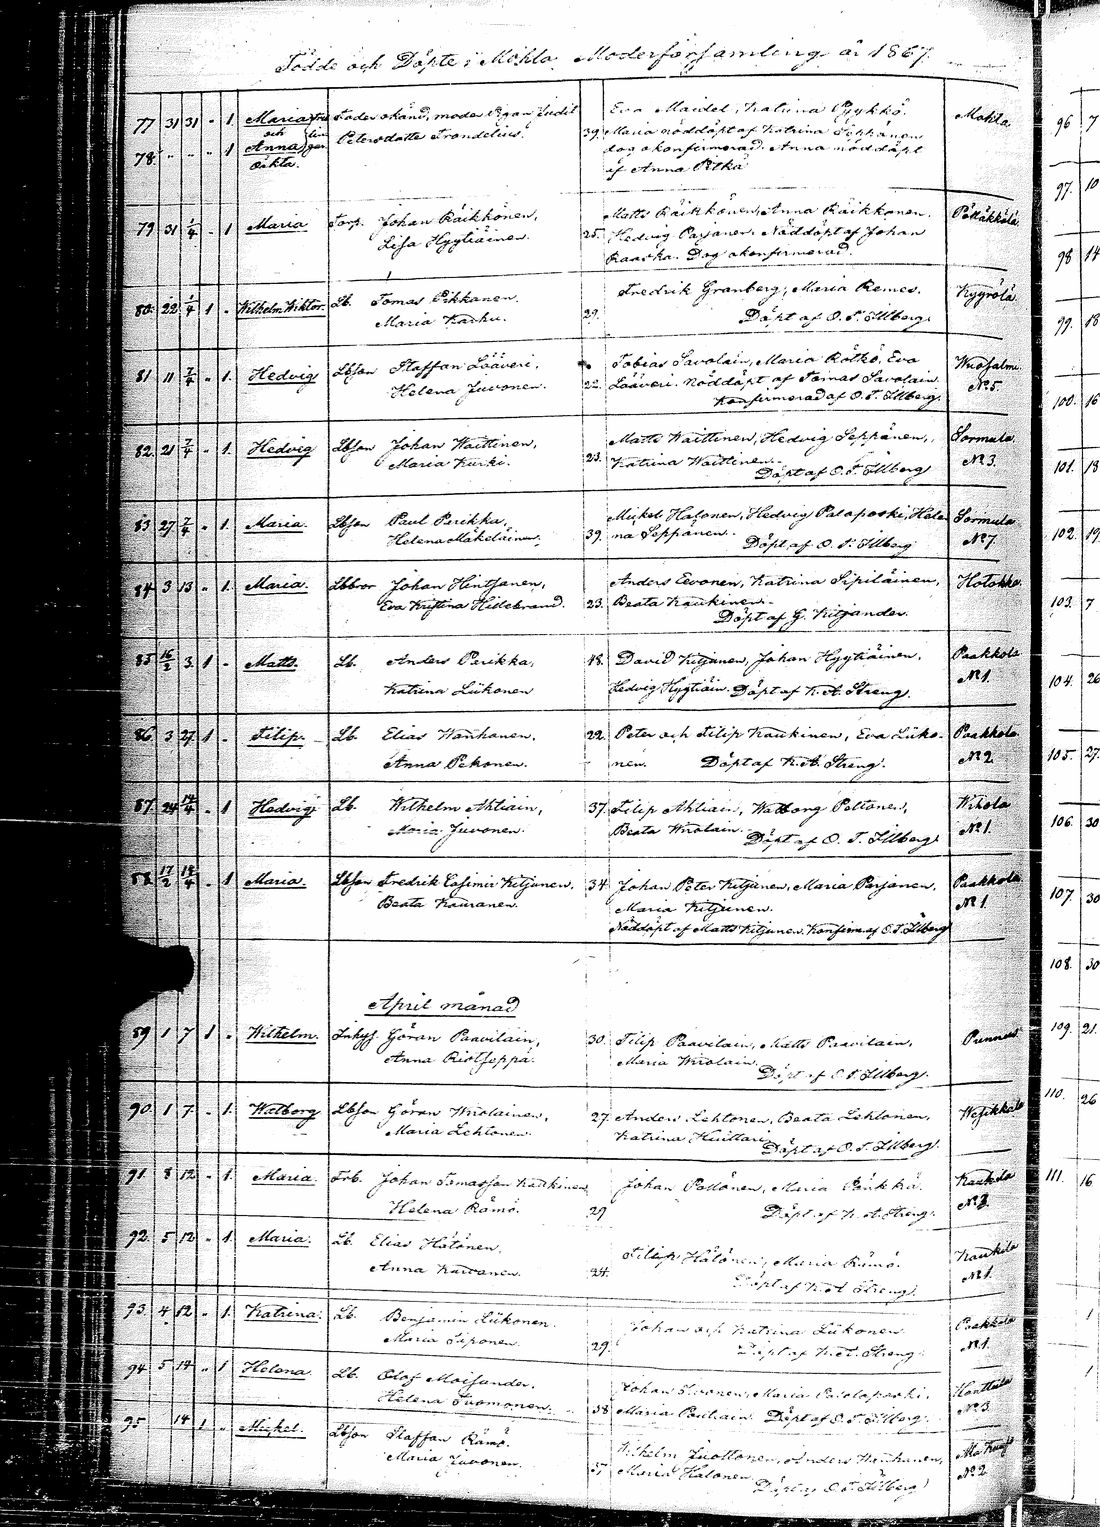 Födde och Döpte i Mohla Moderförsamling år 1867.
77 31 31 " 1 Maria Fader okänd, moder Pigan Judit Eva Maidel, Katrina Pyykkö. Mohla
och Petersdotter Trondelius. 39. Maria nöddöpt af Katrina
78. " " " 1 Anna dog okonfirmerad. Anna nöddöpt
oäkta. af Anna Pitkä
79 31 1/4 " 1 Maria Torp. Johan Räikkönen, Matts Räikkönen, Anna Räikkönen. Pölläkkälä
Lisa Hyytiäinen. 25. Hedvig Parjanen. Nöddöpt af Johan
Raaska. Dog okonfirmerad.
80. 22 1/4 1 " Wilhelm Wiktor. Lb. Tomas Pikkanen. Fredrik Granberg, Maria Remes. Kyyrölä
Maria Karhu. 29. Döpt af O. T. Illberg.
81 11 7/4 " 1. Hedvig Lbson Staffan Lääveri, Tobias Savolain, Maria Rötkö, Eva Wuosalmi
Helena Juvonen. 22. Lääveri. Nöddöpt af Tomas Savolain. No 5.
Konfirmerad af O. T. Illberg.
82. 21 7/4 " 1. Hedvig Lbson Johan Waittinen, Matts Waittinen, Hedvig Seppänen, Sormula
Maria Kurki. 23. Katrina Waittinen. No 3.
Döpt af O. T. Illberg
83 27 7/4 " 1. Maria. Lbson Paul Parikka, Mickel Halonen, Hedvig Palaposki, Hele Sormula
Helena Mäkeläinen. 39. na Seppänen. Döpt af O. T. Illberg No 7.
84 3 13 " 1. Maria. Lbbror Johan Hentjanen, Anders Eevonen, Katrina Sipiläinen, Hotokka
Eva Kristina Hildebrand. 23. Beata Kaukinen.
Döpt af G. Kiljander.
85 16/2 3. 1 " Matts. Lb. Anders Parikka, 48. David Kiljunen, Johan Hyytiäinen, Paakkola
Katrina Liikonen Hedvig Hyytiäin. Döpt af K. A. Streng. No 1.
86 3 27 1 " Filip. Lb. Elias Wanhanen. 22. Peter och Filip Kaukinen, Eva Liiko- Paakkola
Anna Pekonen. nen. Döpt af K. A. Streng. No 2
87. 24 14/4 " 1 Hedvig Lb. Wilhelm Ahtiain, 37. Filip Ahtiain, Walborg Poltonen, Wihola
Maria Juvonen. Beata Wirolain. No 1.
Döpt af O. T. Illberg
88. 17/2 14/4 " 1 Maria. Lbson Fredrik Casimir Kiljunen, 34. Johan Peter Kiljunen, Maria Parjanen, Paakkola
Beata Kauranen. Maria Kiljunen. No 1.
Nöddöpt af Matts Kiljunen. Konfirm. af O. T. Illberg
April månad
89 1 7 1 " Wilhelm. Inhys. Göran Paavilain, 30. Filip Paavilain, Matts Paavilain, Punnus
Anna Ristseppä. Maria Wirolain.
Döpt af O. T. Illberg.
90. 1 7 " 1. Walborg Lbson Göran Wirolainen, 27. Anders Lehtonen, Beata Lehtonen, Wesikkala
Maria Lehtonen. Katrina Huittari
Döpt af O. T. Illberg.
91. 8 12 " 1. Maria. Trb. Johan Tomasson Kaukinen, Johan Poltonen, Maria Pänkkä. Kaukila
Helena Rämö. 29 Döpt af K. A. Streng. No 3.
92. 5 12 " 1. Maria. Lb. Elias Hätönen. Filip Hätönen, Maria Rämö. Kaukila
Anna Kauranen. 24. Döpt af K. A. Streng. No 1.
93. 4 12 " 1. Katrina. Lb. Benjamin Liikonen. Johan och Katrina Liikonen Paakkola
Maria Siponen. 29. Döpt af K. A. Streng. No 1.
94 5 14 " 1 Helena. Lb. Olof Moisander. Johan Iivonen, Maria Palaposki, Honttula
Helena Tuomonen. 38 Maria Pouhiain. Döpt af O. T. Illberg. No 3
95 14 1 " Mickel. Lbson Staffan Rämö. Wilhelm Juottonen, Anders Wanhanen,
Maria Juvonen. Maria Halonen. No 2
Döpt af O. T. Illberg
96 7
97. 10
98 14
99. 18
100. 16
101. 18
102. 19
103. 7
104. 26
105. 27.
106. 30
107. 30
108. 30
109. 21.
110. 26
111. 16